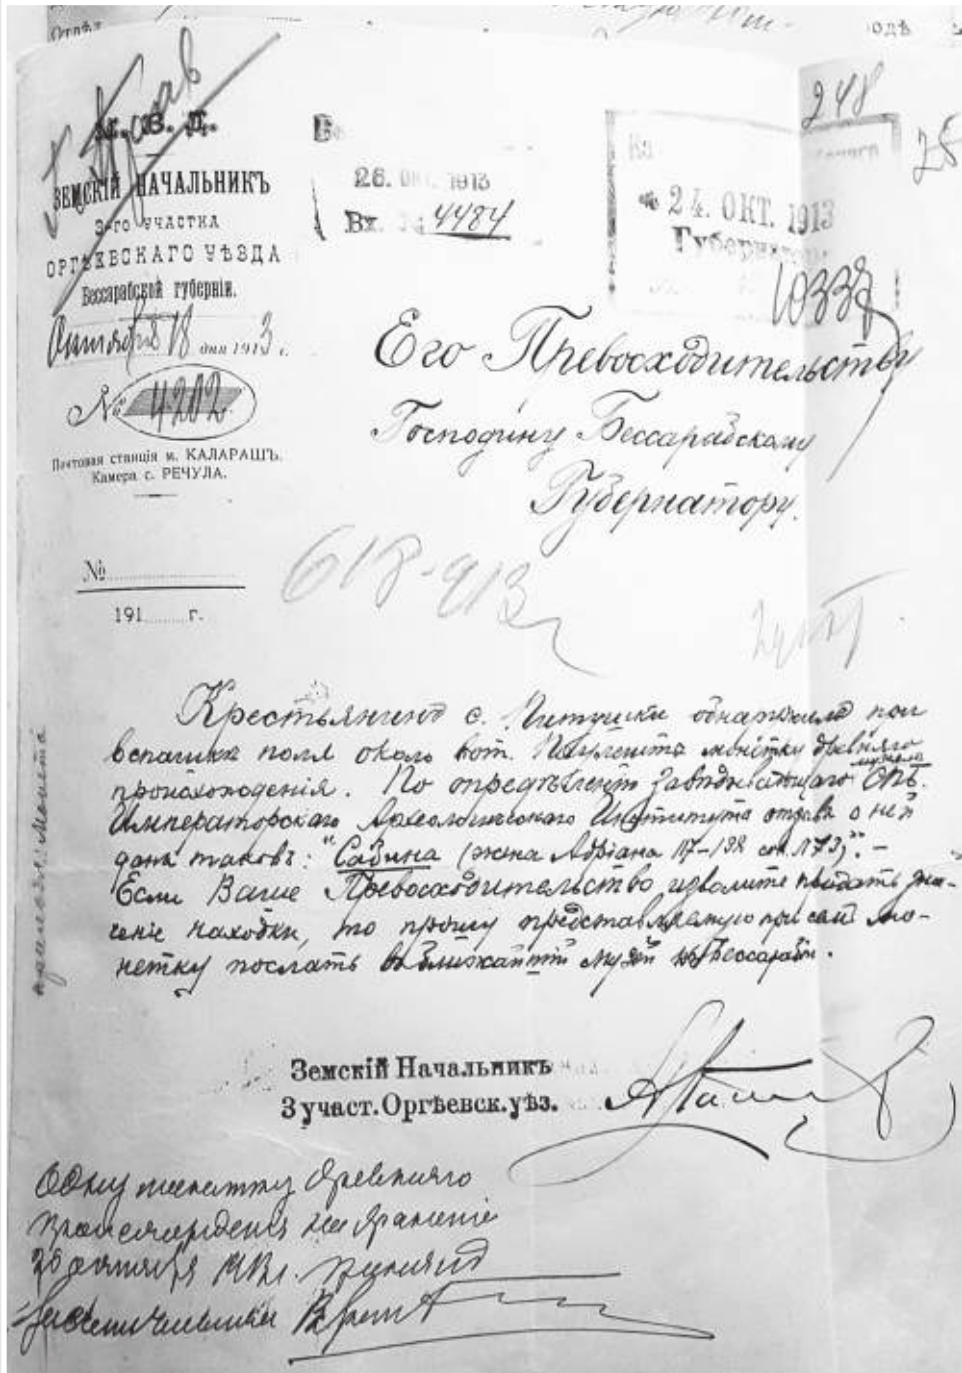 Отдѣл
одѣ
М. В. Д.
ЗЕМСКІЙ НАЧАЛЬНИКЪ
3-го УЧАСТКА
ОРГѢЕВСКАГО УѢЗДА
Бессарабской губерніи.
Октября 18 дня 1913 г.
№ 4202
Почтовая станція м. КАЛАРАШЪ.
Камера с. РЕЧУЛА.
№
191 г.
26. ОКТ. 1913
Вх. № 4484
248
78
24. ОКТ. 1913
Губернатора
10338
Его Превосходительству
Господину Бессарабскому
Губернатору.
618-913
Крестьянинъ с. обнаружилъ при
вспашкѣ поля около вот. монетку древняго
происхожденія. По опредѣленію Завѣдывающаго музеемъ СПБ.
Императорскаго Археологическаго Института отзывъ о ней
данъ таковъ: "Сабина (жена Адріана 117-138 1173)". -
Если Ваше Превосходительство изволите придать зна-
ченіе находкѣ, то прошу представляемую при семъ мо-
нетку послать въ ближайшій музей въ Бессарабіи.
Земскій Начальникъ
3 участ. Оргѣевск. уѣз.
Одну монетку древняго
происхожденія на храненіе
октября 1913 г. принялъ